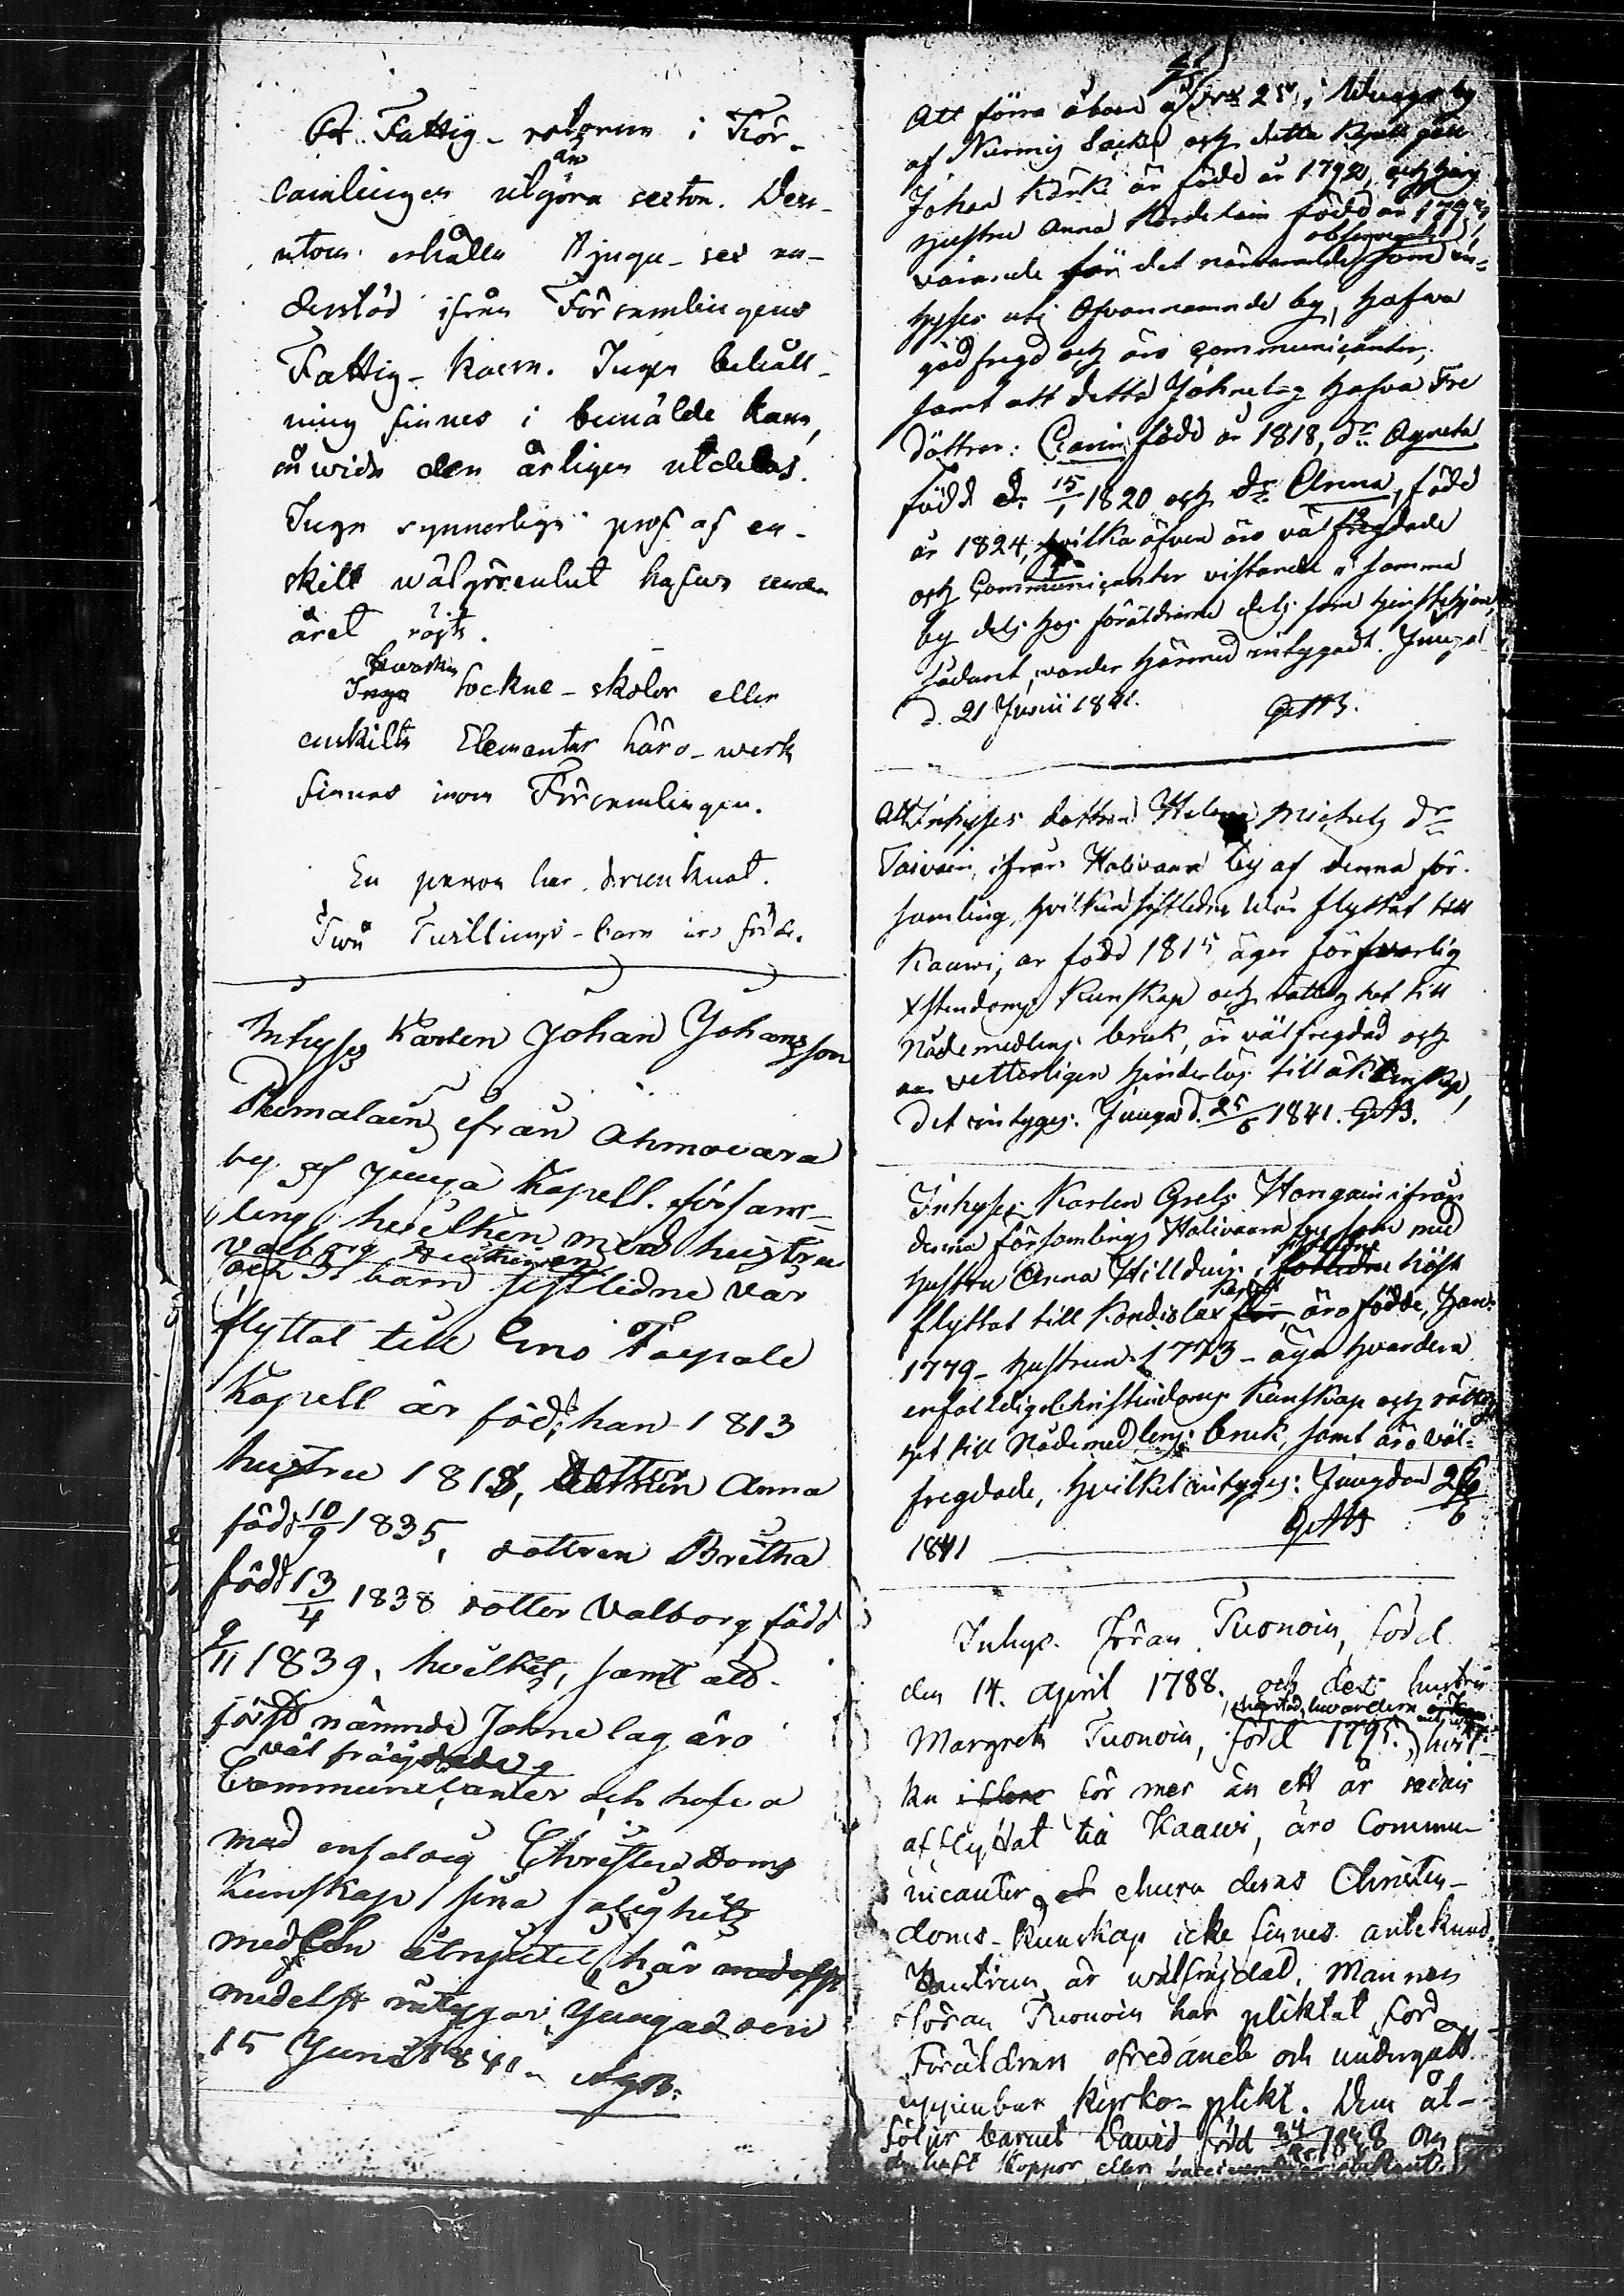 Fattig-rotorne i För-
samlingen utgöra sexton. Dess-
utom erhålla tjugu-sex un-
derstöd ifrån Församlingens
Fattig-kassa. Ingen behåll-
ning finnes i bemälde kassa,
den årligen utdelas.
Inga synnerliga prof af en-
skilt wälgörenhet hafwa under
året röjts.
Inga Sockne-skolor eller
enskilta Elementar läro-werk
finnas inom Församlingen.
En person har drunknat.
Twå Twillings-barn äro födde.
Inhyses Karlen Johan Johansson
ifrån Ahmovara
by af Juuga Kapell. försam-
ling, hvilken med hustru
Valborg
och 3 barn sistledne vår
flyttat till Eno
Kapell är född; han 1813
hustru 1818, dottren Anna
född 10/9 1835, dottren Britha
född 13/4 1838 dotter Valborg född
9/11 1839, hvilket, samt att
först nämnde Johne lag äro
väl frägdade
Communicanter och hafva
med enfaldig Christendoms
Kunskap sina salighets
medlen åtnjutit, här
medelst intygar, Juuga den
15 Juni 1841.
Att förra åboen å No 25 i Juuga by
af Nurmis Socken och detta Kapell gäll
Johan är född år 1792, och hans
Hustru Anna född år
varande för det närvarande som in-
hyses uti Ofvannämnde by, hafwa
god fregd och äro communicanter,
samt att detta Johnelag hafva Tre
döttrar: Carin född år 1818, dr Agneta
född d. 15/1 1820 och dr Anna, född
år 1824, hvilka äfven äro väl fregdade
och Communicanter vistande i samma
by dels hos föräldrarne dels som
sådant, warder härmed intygadt. Juuga
d. 21 Junii 1841.
Att Inhyses dottren Helena Michels dr
Toivain, ifrån Halivaara by af denna för-
samling, hvilken sistledne vår flyttat till
Kaawi, är född 1815, äger försvarlig
Xstendoms Kunskap och rättighet till
Nådemedlens bruk, är välfregdad och
vetterligen hinderlös till äktenskap,
Det intyges. Juuga d. 25/6 1841.
Inhyses Karlen Grels Hongain ifrån
denna församlings Halivaara by som med
Hustru Anna Hilldur, sistledne höst
flyttat till Kondiolax Kapell, äro födde, Han
1779 - Hustrun 1773 - äga hvardera
enfaldig Christendoms Kunskap och rättig-
het till Nådemedlens bruk, samt äro väl-
fregdade, hvilket intyges: Juuga den 26/6
1841
Inhys. Jöran Tuonoin, född
den 14. April 1788. och des hustru
Margreta Tuonoin, född 1795. hvil-
ka för mer än ett år sedan
afflyttat till Kaawi, äro Commu-
nicanter, ehuru deras Christen-
doms-kunskap icke finnes antecknad.
Hustrun är wälfräjdad. Mannen
Jöran Tuonoin har pliktat för
Föräldrars ofredande och undergått
uppenbar kyrko-plikt. Dem åt-
följer barnet David född 24/ 1828 Om
de haft Koppor eller